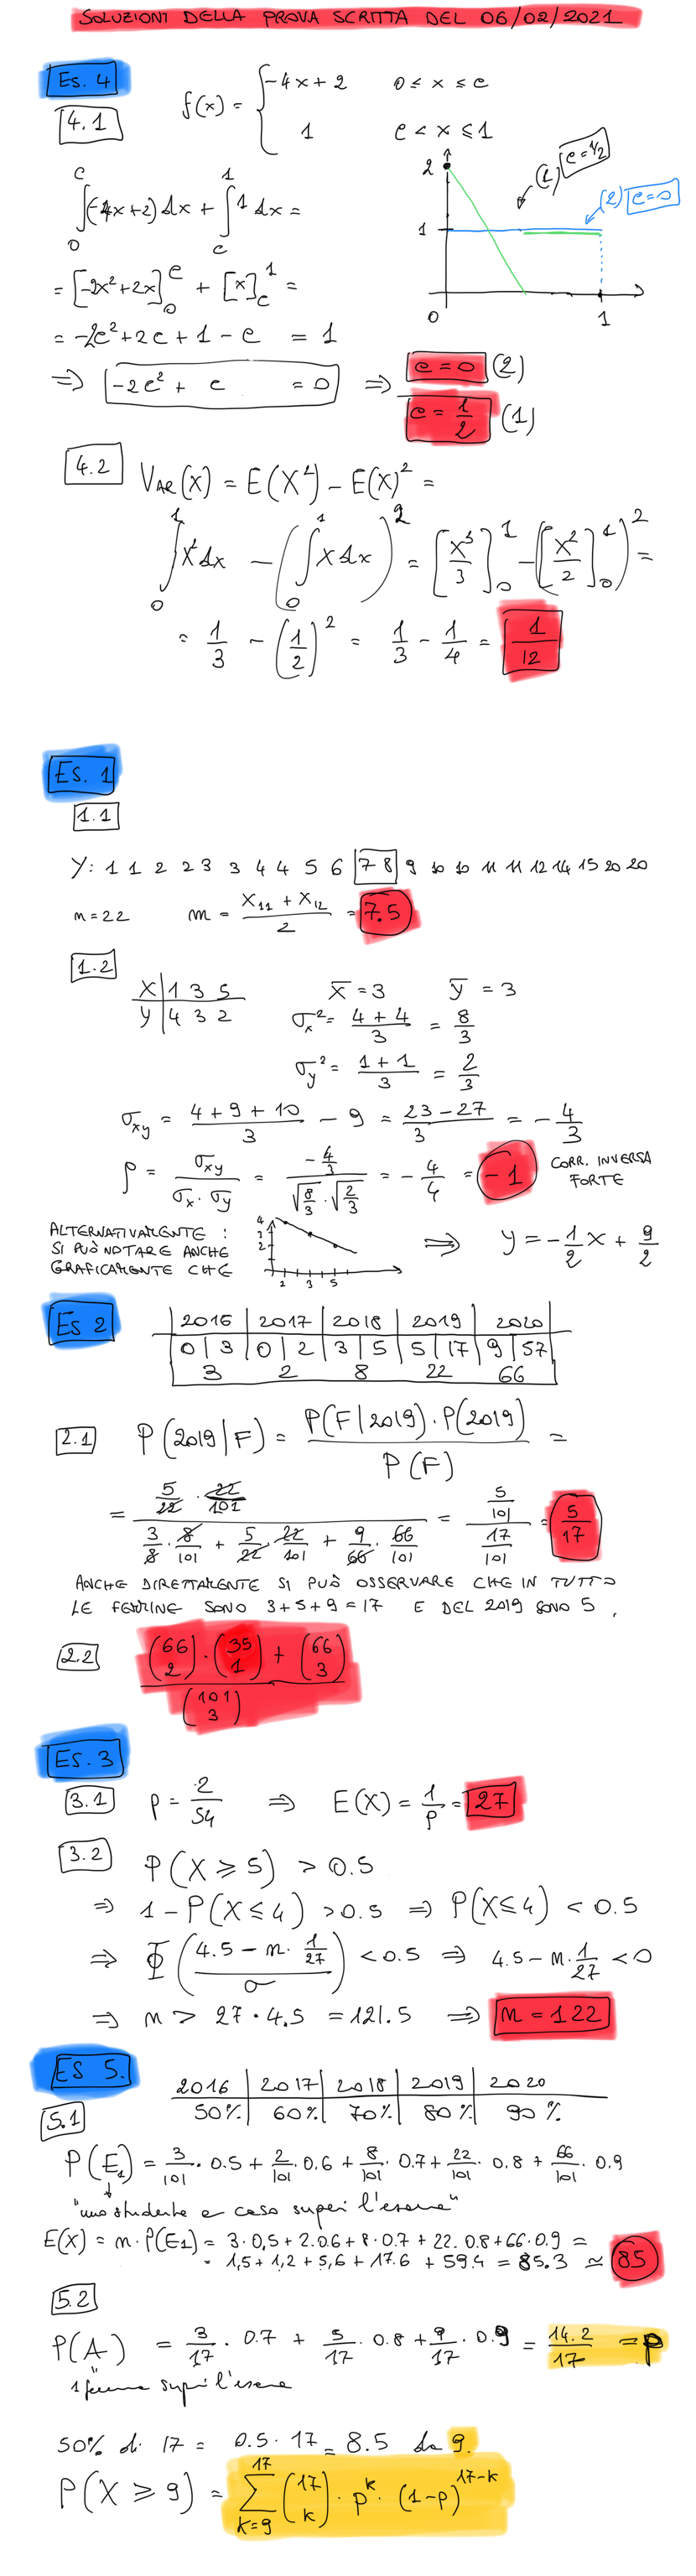 SOLUZIONI DELLA PROVA SCRITTA DEL 06/02/2021
Es. 4
4.1
f(x) = { -4x+2 0 ≤ x ≤ c
1 c < x ≤ 1
∫_0^c (-4x+2) dx + ∫_c^1 1 dx =
= [-2x²+2x]_0^c + [x]_c^1 =
= -2c²+2c+1-c = 1
⇒ -2c²+ c = 0 ⇒ c=0 (2)
c = 1/2 (1)
2
1
0
1
(1) c=1/2
(2) c=0
4.2
VAR(X) = E(X²) - E(X)² =
∫_0^1 x² dx - (∫_0^1 x dx)² = [x³/3]_0^1 - ([x²/2]_0^1)² =
= 1/3 - (1/2)² = 1/3 - 1/4 = 1/12
Es. 1
1.1
Y: 1 1 2 2 3 3 4 4 5 6 7 8 9 10 10 11 11 12 14 15 20 20
n=22 m = (X₁₁ + X₁₂)/2 = 7.5
1.2
X | 1 3 5
Y | 4 3 2
x̄ = 3 ȳ = 3
σx² = (4+4)/3 = 8/3
σy² = (1+1)/3 = 2/3
σxy = (4+9+10)/3 - 9 = (23-27)/3 = -4/3
ρ = σxy/(σx·σy) = (-4/3)/(√(8/3)·√(2/3)) = -4/4 = -1 CORR. INVERSA
FORTE
ALTERNATIVAMENTE :
SI PUÒ NOTARE ANCHE
GRAFICAMENTE CHE
4
3
2
1 3 5
⇒ y = -1/2 x + 9/2
Es 2
2016 | 2017 | 2018 | 2019 | 2020
0 | 3 | 0 | 2 | 3 | 5 | 5 | 17 | 9 | 57
3 2 8 22 66
2.1
P(2019|F) = P(F|2019)·P(2019) / P(F) =
= (5/22 · 22/101) / (3/8 · 8/101 + 5/22 · 22/101 + 9/66 · 66/101) = (5/101)/(17/101) = 5/17
ANCHE DIRETTAMENTE SI PUÒ OSSERVARE CHE IN TUTTO
LE FEMMINE SONO 3+5+9=17 E DEL 2019 SONO 5.
2.2
((66 2)·(35 1) + (66 3)) / (101 3)
Es. 3
3.1
p = 2/54 ⇒ E(X) = 1/p = 27
3.2
P(X ≥ 5) > 0.5
⇒ 1 - P(X ≤ 4) > 0.5 ⇒ P(X ≤ 4) < 0.5
⇒ Φ((4.5 - n·1/27)/σ) < 0.5 ⇒ 4.5 - n·1/27 < 0
⇒ n > 27·4.5 = 121.5 ⇒ n = 122
ES 5.
2016 | 2017 | 2018 | 2019 | 2020
50% | 60% | 70% | 80% | 90%
5.1
P(E₁) = 3/101 · 0.5 + 2/101 · 0.6 + 8/101 · 0.7 + 22/101 · 0.8 + 66/101 · 0.9
"uno studente a caso superi l'esame"
E(X) = n·P(E₁) = 3·0,5 + 2·0.6 + 8·0.7 + 22·0.8 + 66·0.9 =
= 1,5 + 1,2 + 5,6 + 17.6 + 59.4 = 85.3 ≃ 85
5.2
P(A) = 3/17 · 0.7 + 5/17 · 0.8 + 9/17 · 0.9 = 14.2/17 = p
"
1 femmina superi l'esame
50% di 17 = 0.5·17 = 8.5 da 9.
P(X ≥ 9) = ∑_{k=9}^{17} (17 k) · p^k · (1-p)^{17-k}